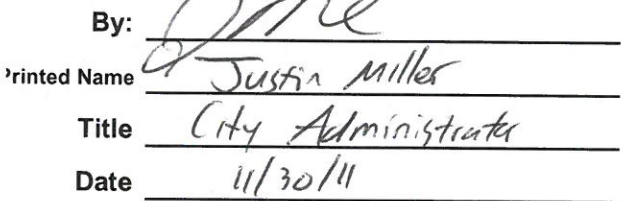 By:
Printed Name Justin Miller
Title City Administrator
Date 11/30/11